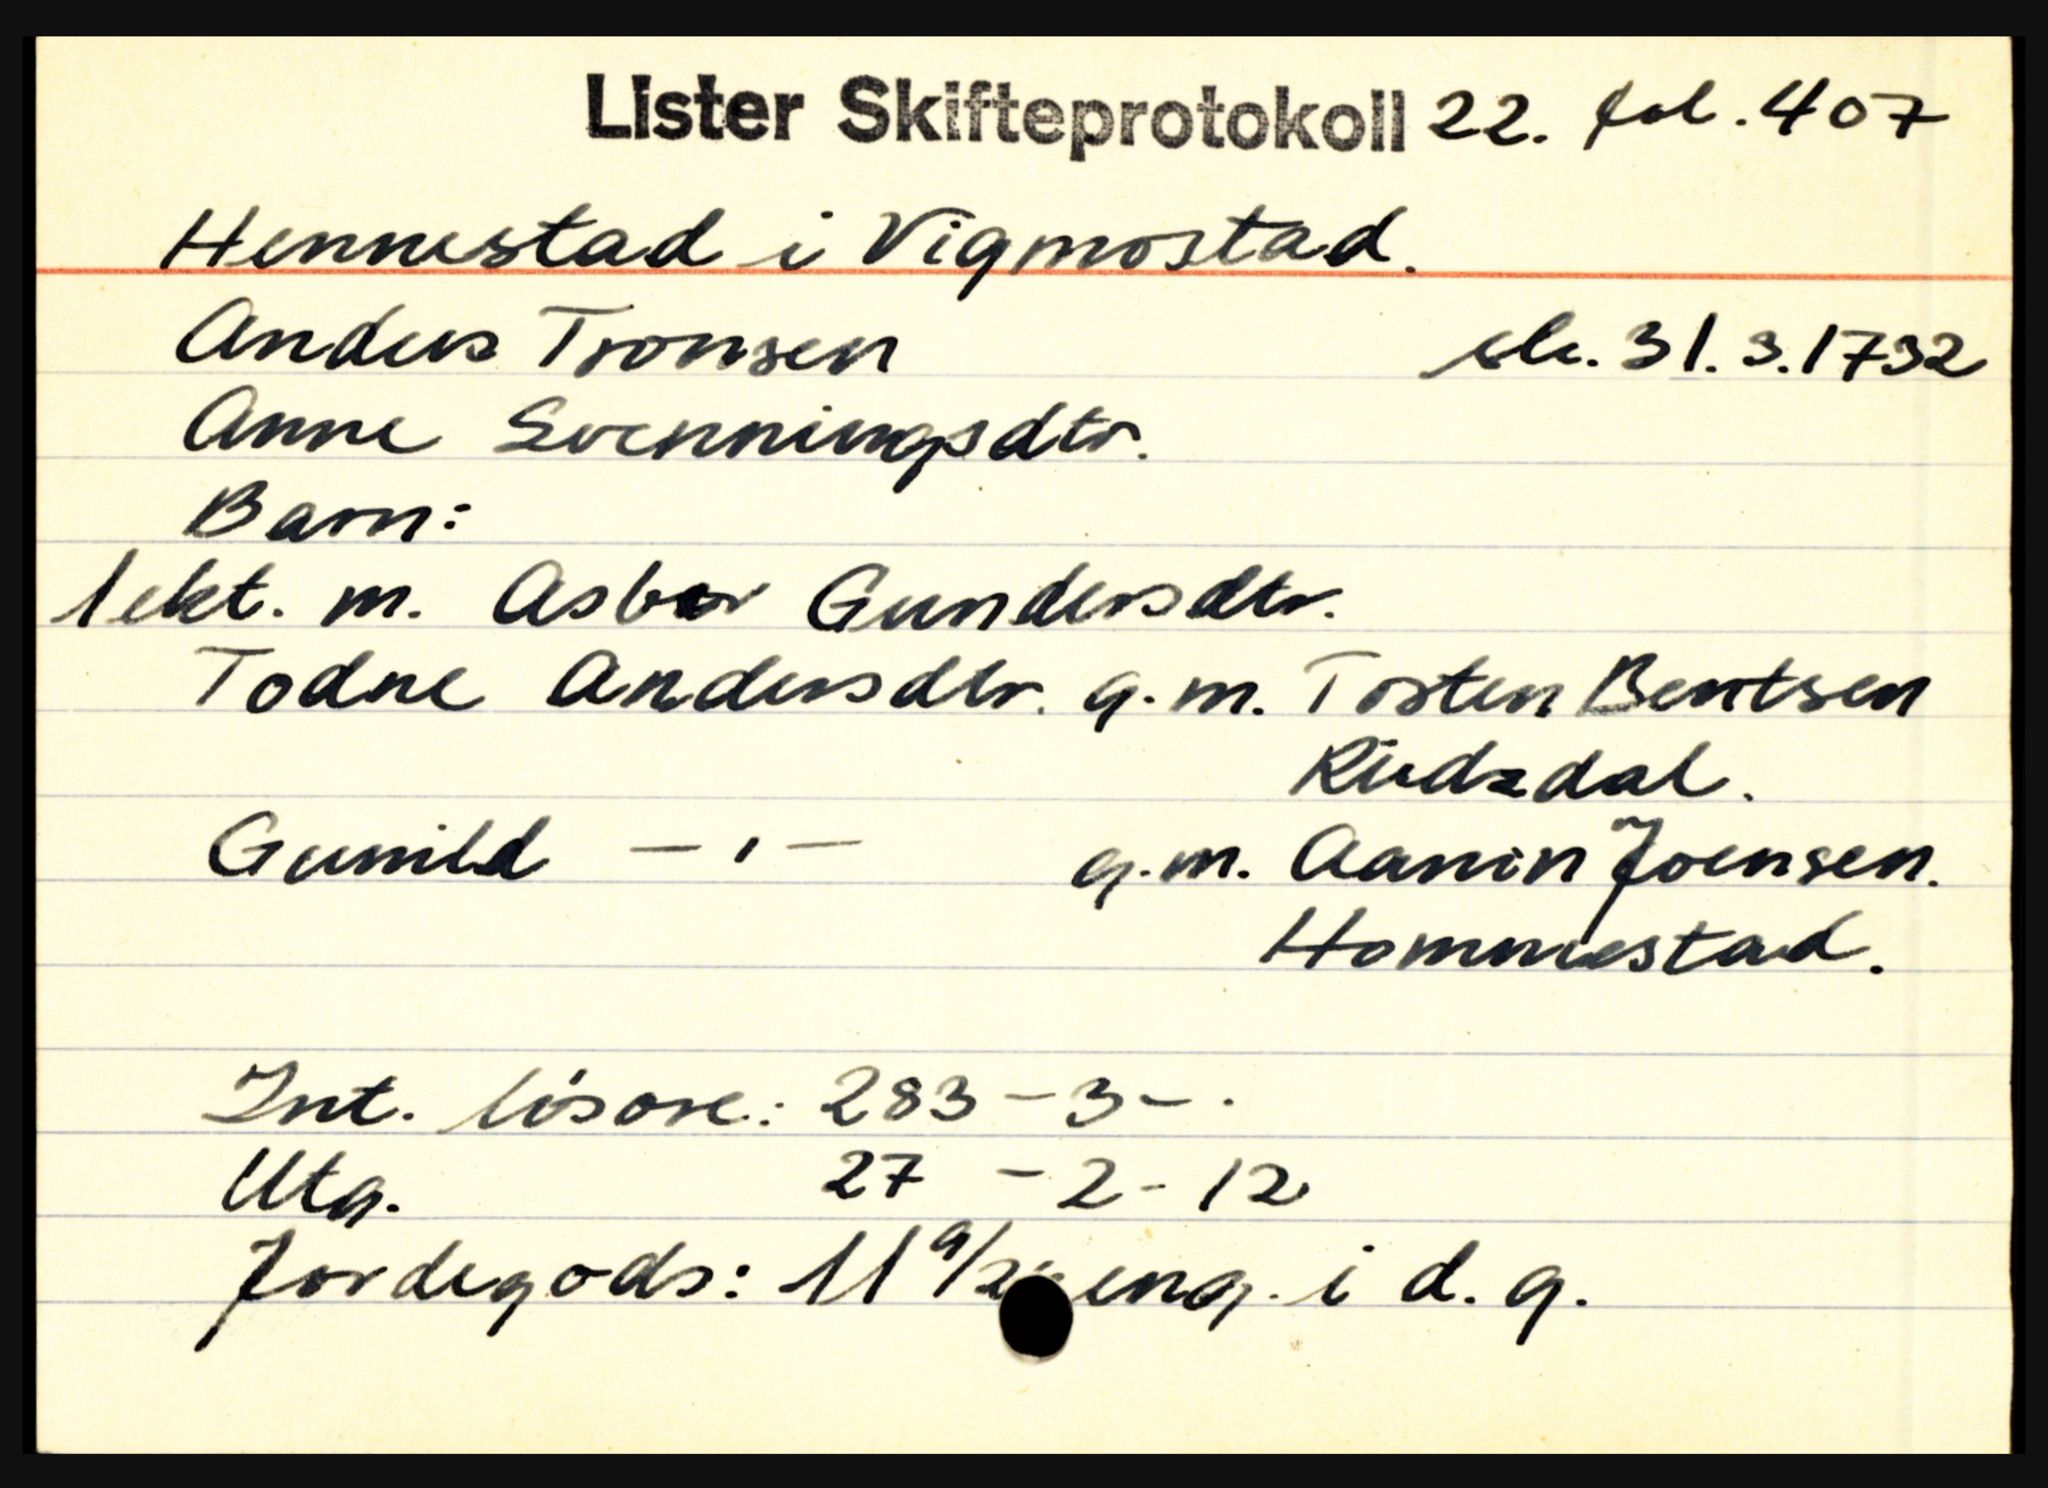 Lister Skifteprotokoll 22. fol. 407
Hennestad i Vigmostad.
Anders Tronsen sk. 31.3.1732
Anne Svenningsdtr.
Barn:
1 ekt. m. Asbor Gundersdtr.
Todne Andersdtr. g.m. Tosten Bentsen
Rüdsdal.
Gunild — ı — g.m. Aanin Joensen.
Hommestad.
Int. lösöre: 283 - 3 - .
Utg. 27 - 2 - 12
Jordegods: 11 eng. i d. g.